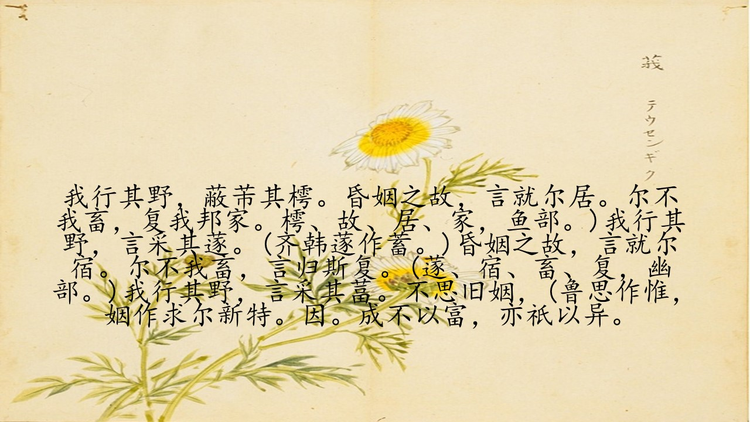 莪
テウセンギク
我行其野，蔽芾其樗。昏姻之故，言就尔居。尔不
我畜，复我邦家。樗、故、居、家，鱼部。)我行其
野，言采其蓫。(齐韩蓫作蓄。)昏姻之故，言就尔
宿。尔不我畜，言归斯复。(蓫、宿、畜、复，幽
部。)我行其野，言采其葍。不思旧姻，(鲁思作惟，
姻作求尔新特。因。成不以富，亦祇以异。